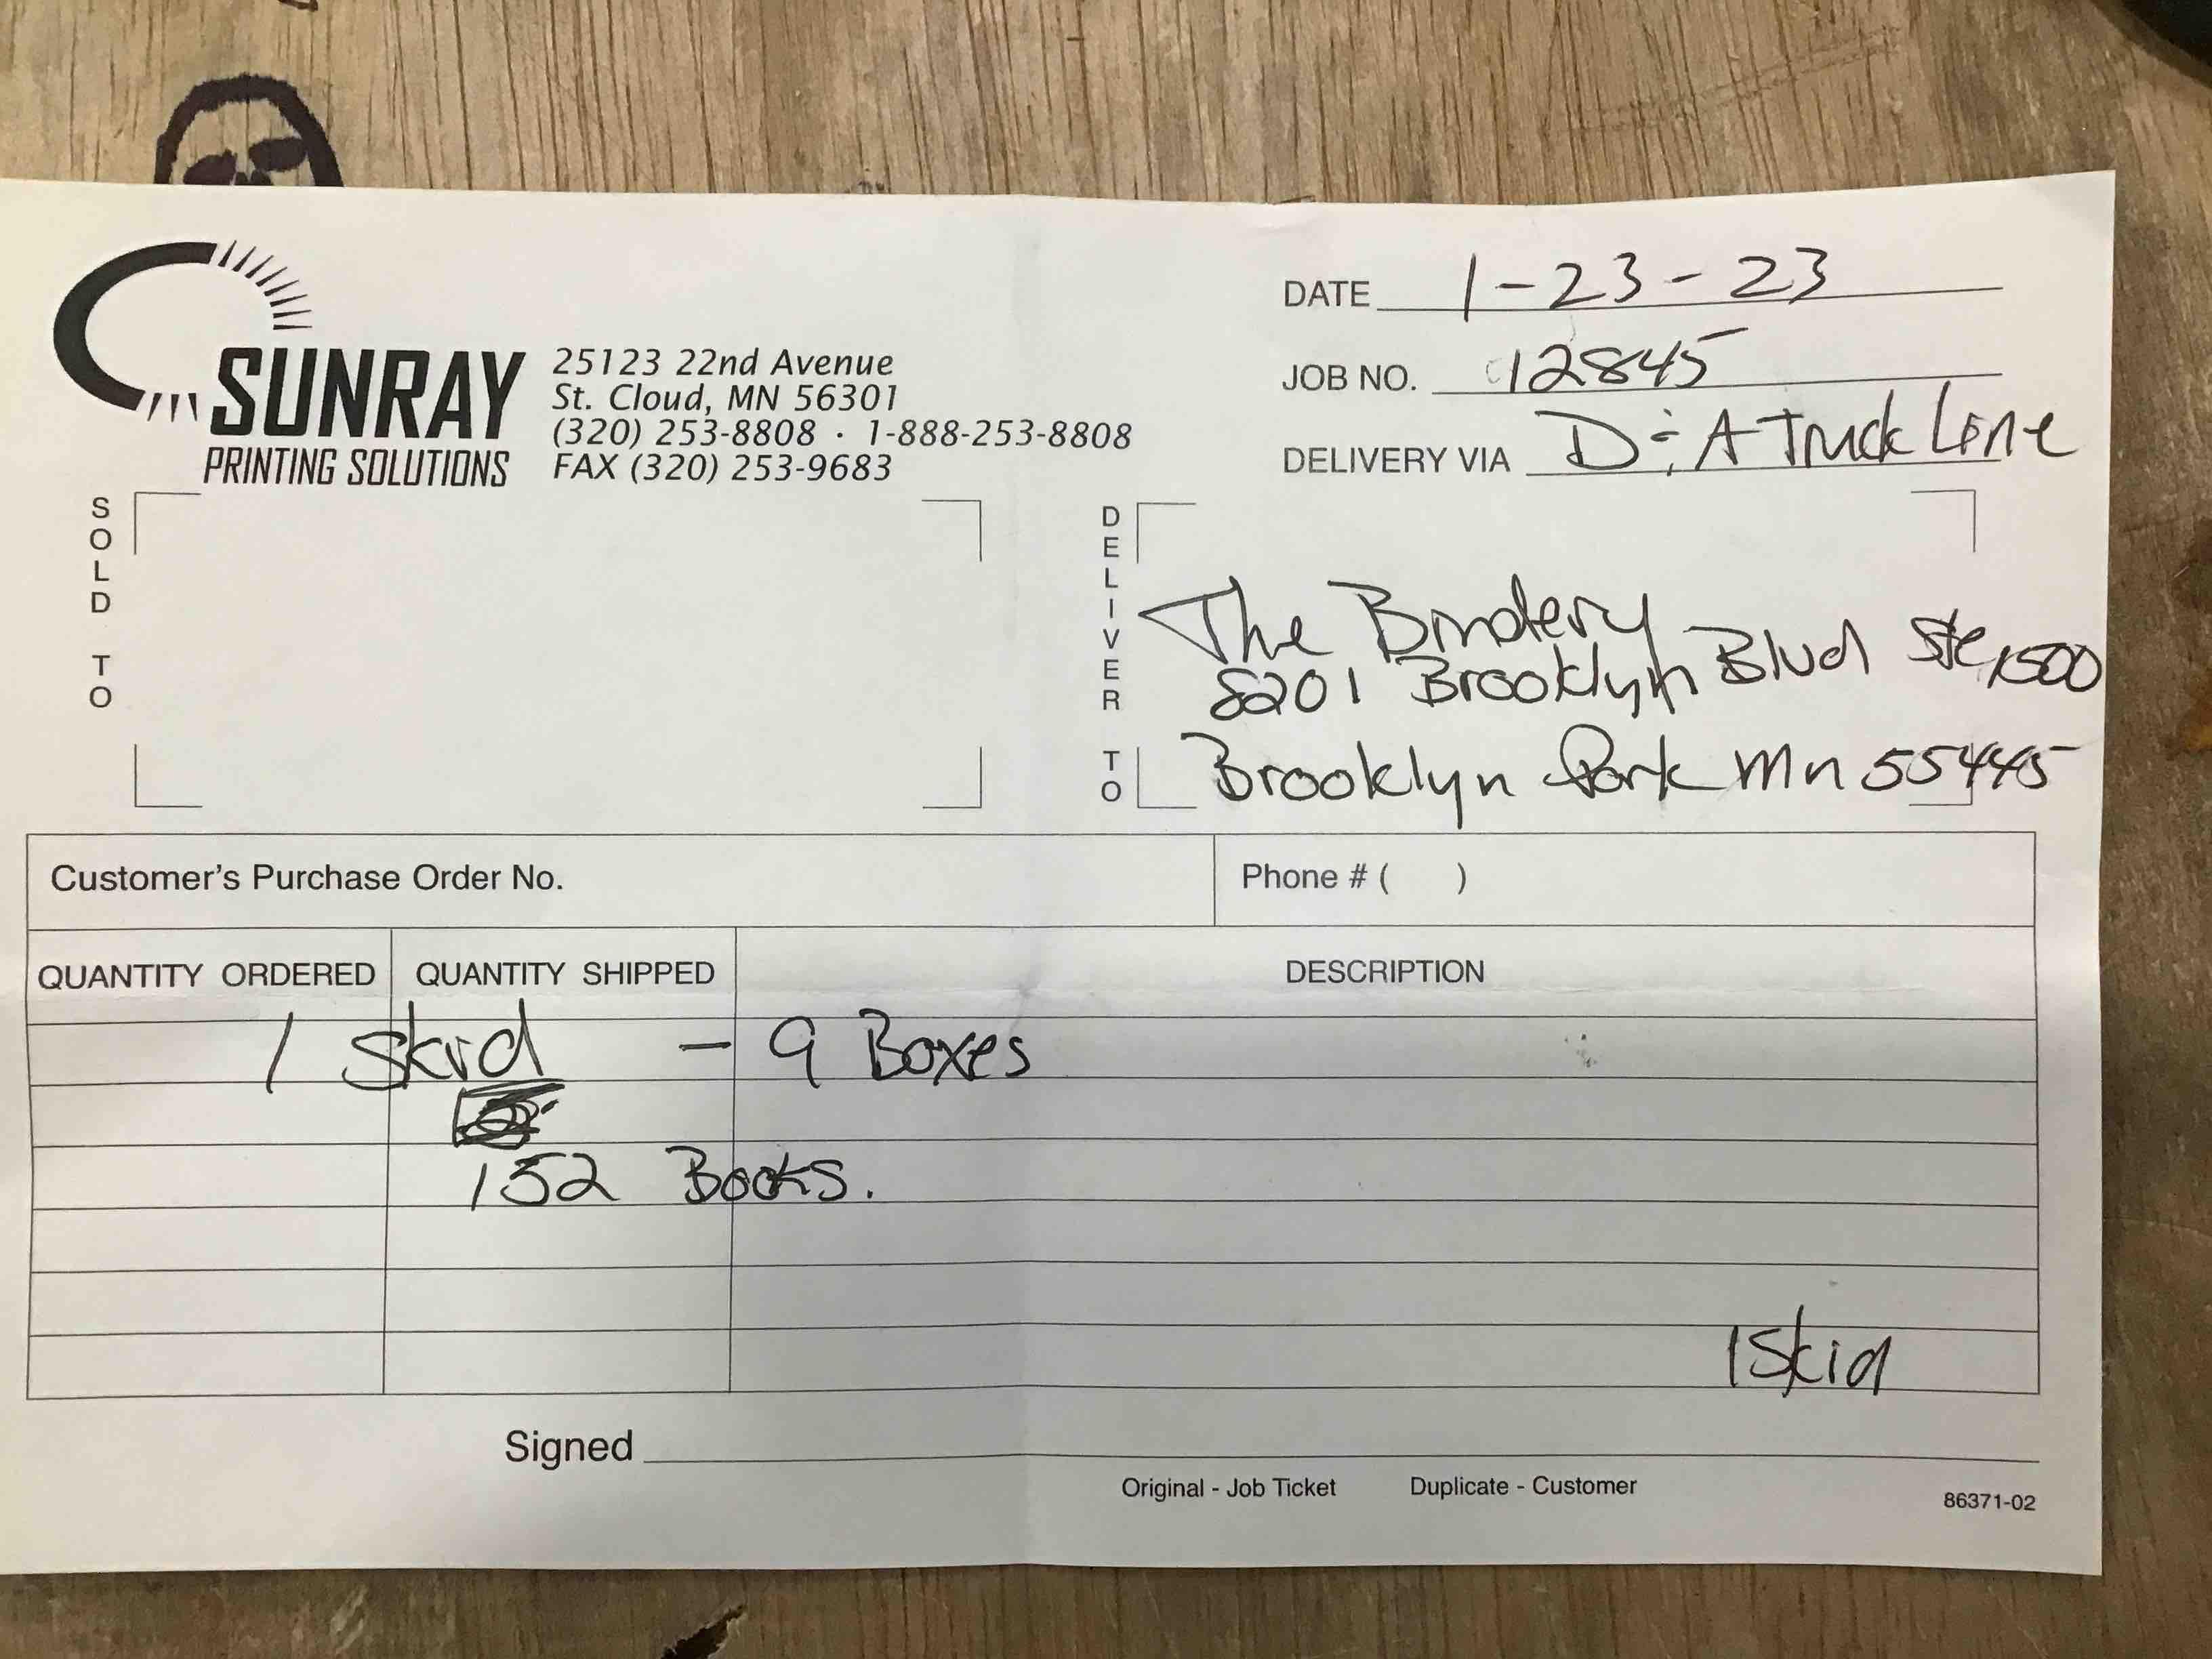 SUNRAY
PRINTING SOLUTIONS
25123 22nd Avenue
St. Cloud, MN 56301
(320) 253-8808 · 1-888-253-8808
FAX (320) 253-9683
DATE 1-23-23
JOB NO. 12845
DELIVERY VIA D & A Truck Line
SOLD TO
DELIVER TO
The Bindery
8201 Brooklyn Blvd Ste 1500
Brooklyn Park Mn 55445
Customer's Purchase Order No.
Phone # ( )
QUANTITY ORDERED QUANTITY SHIPPED DESCRIPTION
1 Skid - 9 Boxes
152 Books.
1 Skid
Signed
Original - Job Ticket Duplicate - Customer
86371-02